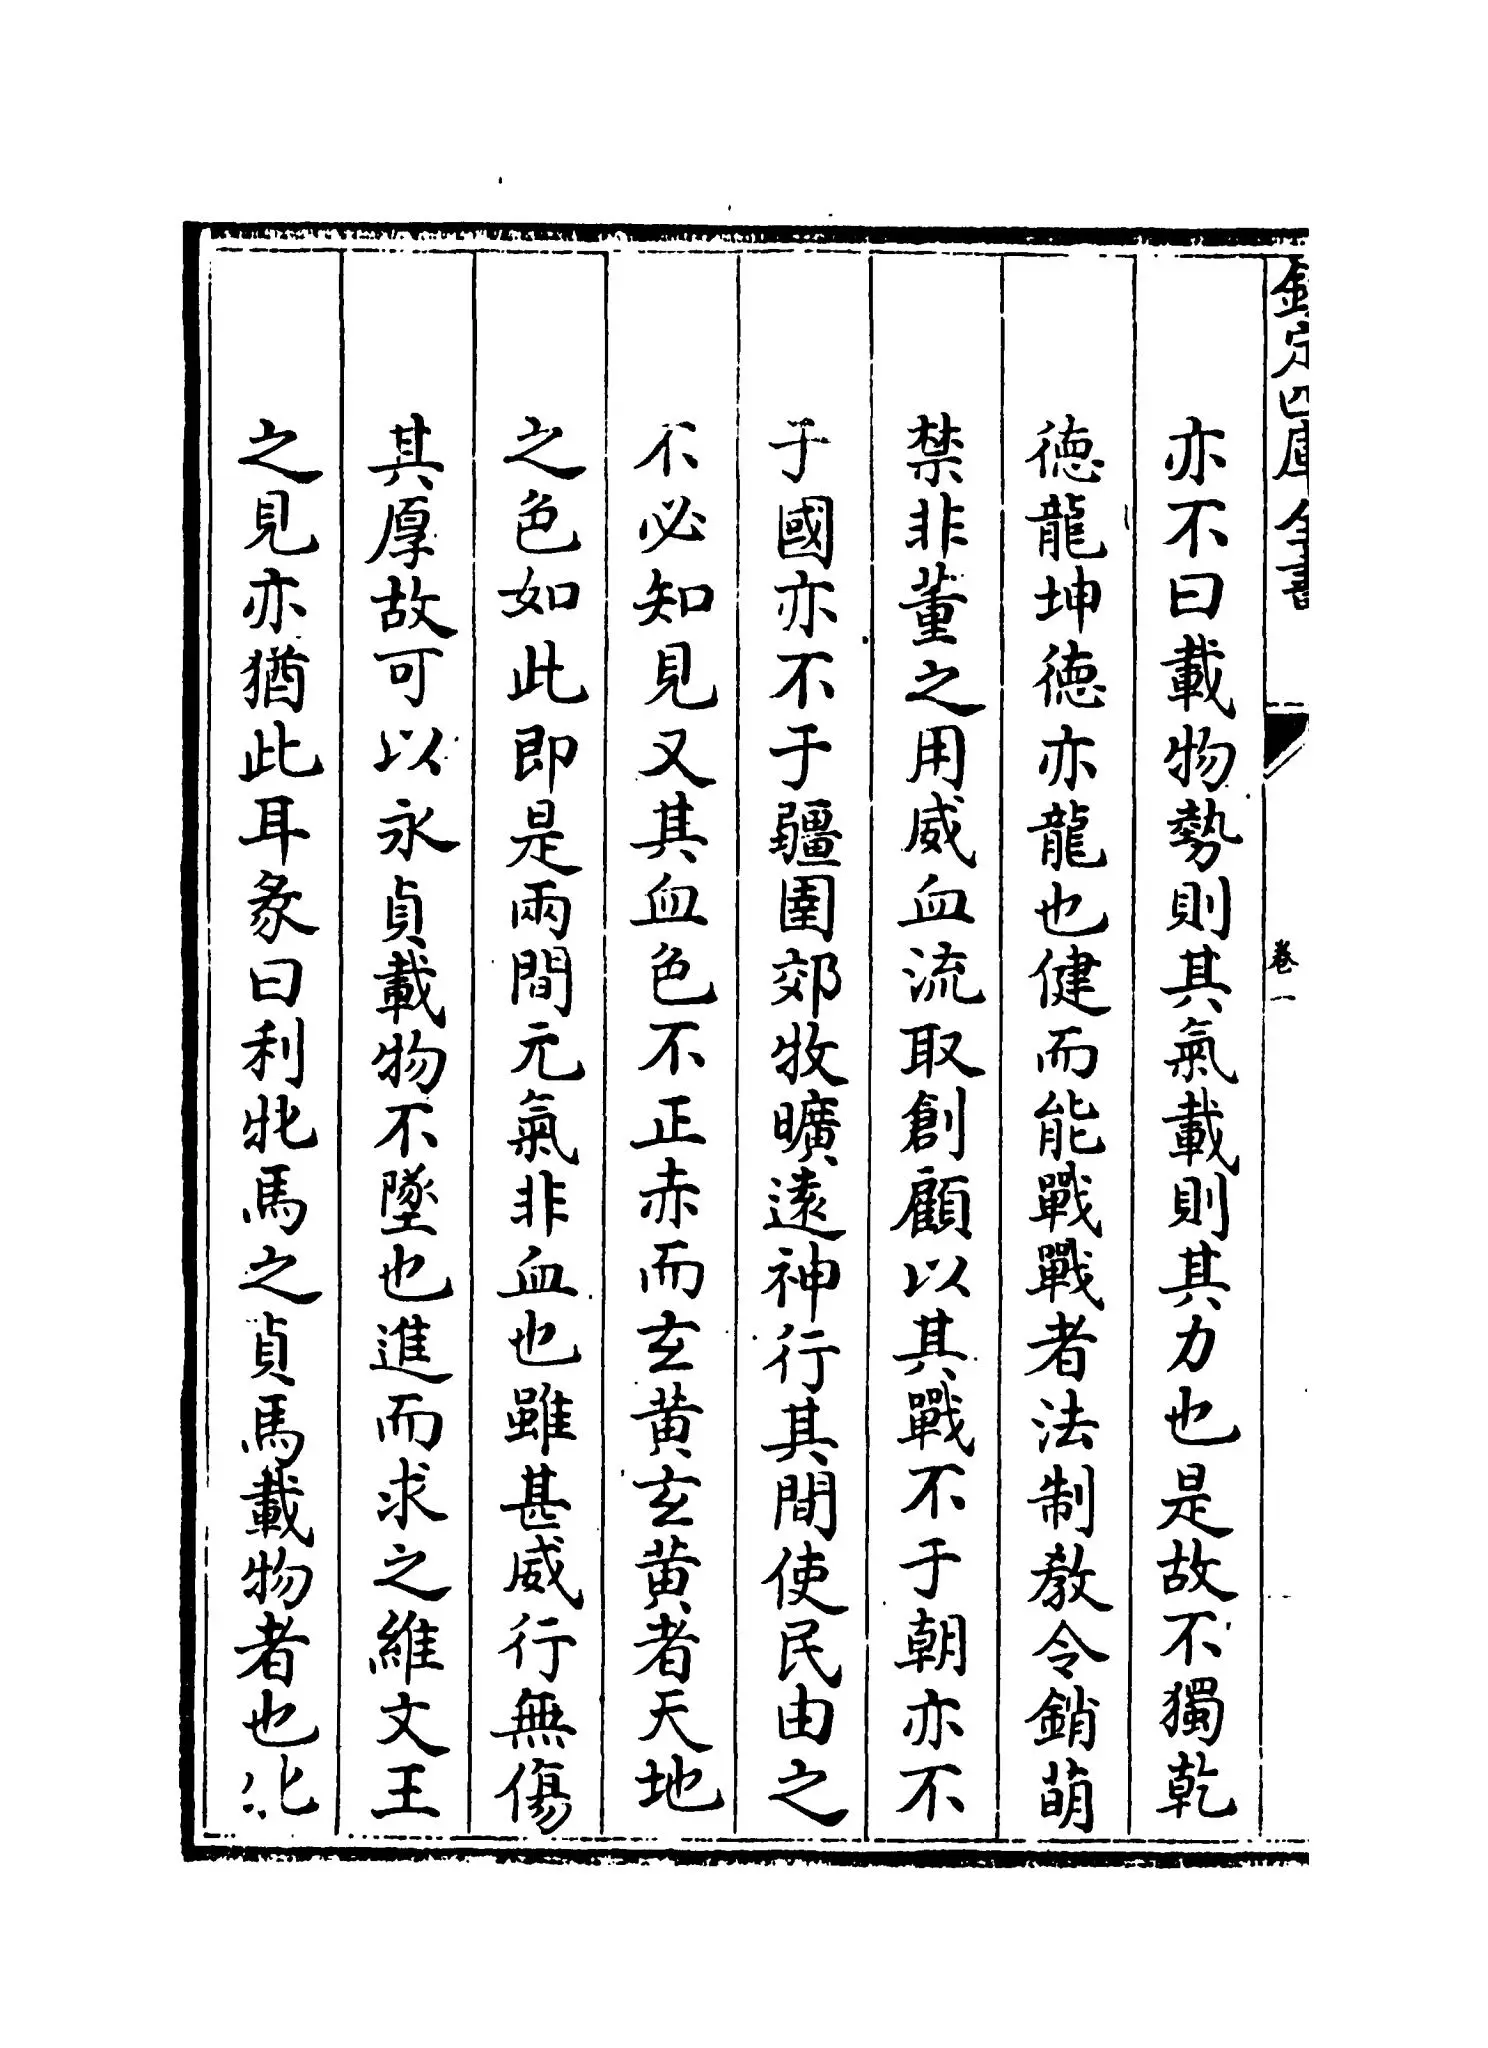 欽定四庫全書
卷一
亦不曰載物勢則其氣載則其力也是故不獨乾
德龍坤德亦龍也健而能戰戰者法制教令銷萌
禁非董之用威血流取創顧以其戰不于朝亦不
于國亦不于疆圉郊牧曠遠神行其間使民由之
不必知見又其血色不正赤而玄黃玄黃者天地
之色如此即是兩間元氣非血也雖甚威行無傷
其厚故可以永貞載物不墜也進而求之維文王
之見亦猶此耳彖曰利牝馬之貞馬載物者也